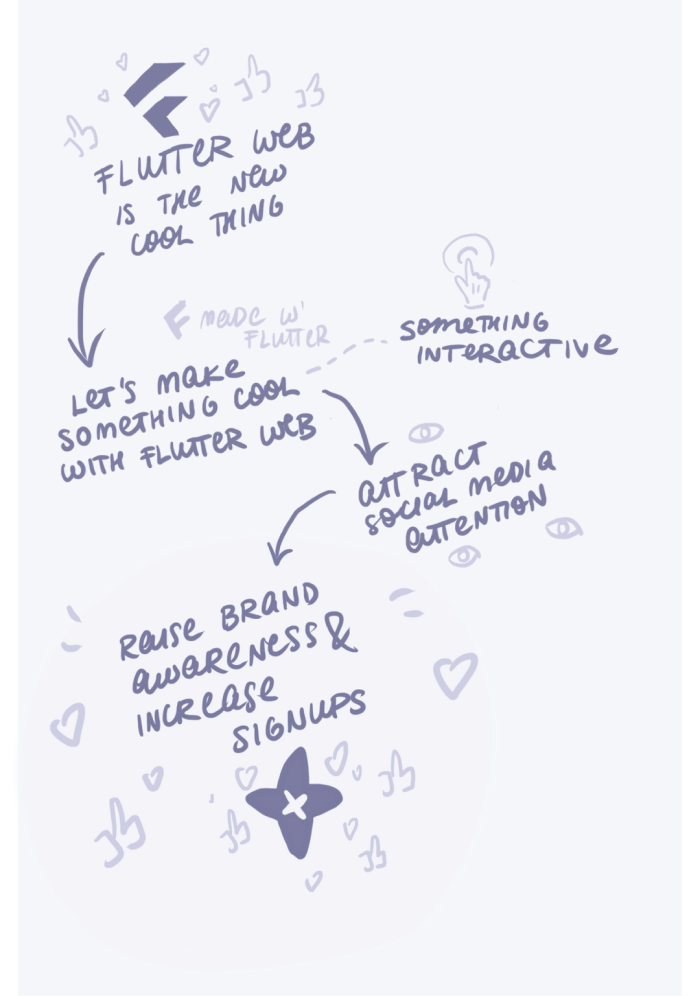 FLUTTER WEB
IS THE NEW
COOL THING
MADE W'
FLUTTER
SOMETHING
INTERACTIVE
LET'S MAKE
SOMETHING COOL
WITH FLUTTER WEB
ATTRACT
SOCIAL MEDIA
ATTENTION
RAISE BRAND
AWARENESS &
INCREASE
SIGNUPS